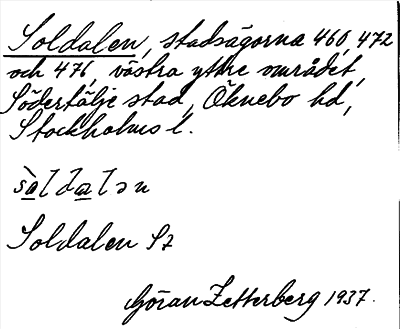 Soldalen, stadsägorna 460, 472
och 476, västra yttre området,
Södertälje stad, Öknebo hd,
Stockholms l.
Soldalen Sz
Göran Zetterberg 1937.